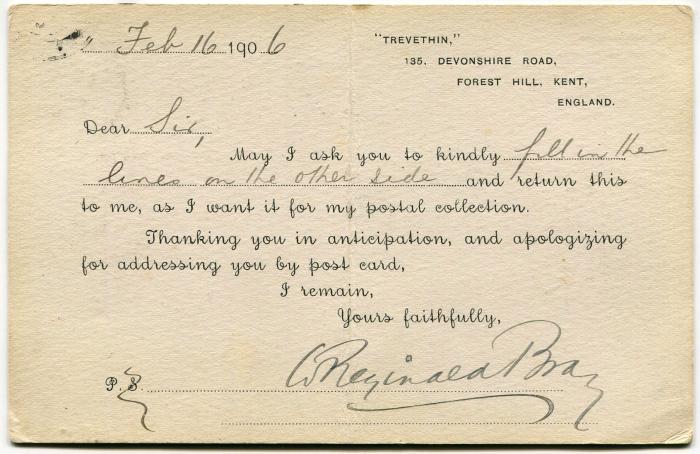 " Feb 16 1906
"TREVETHIN,"
135, DEVONSHIRE ROAD,
FOREST HILL, KENT,
ENGLAND.
Dear Sir,
May I ask you to kindly fill in the
lines on the other side and return this
to me, as I want it for my postal collection.
Thanking you in anticipation, and apologizing
for addressing you by post card,
I remain,
Yours faithfully,
W Reginald Bray
P.S.